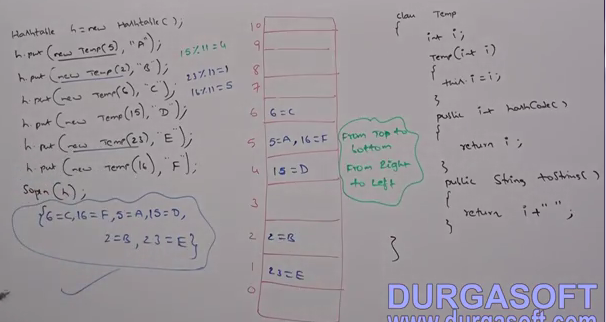 Hashtable h=new Hashtable();
h.put(new Temp(5), "A");
h.put(new Temp(2), "B");
h.put(new Temp(6), "C");
h.put(new Temp(15), "D");
h.put(new Temp(23), "E");
h.put(new Temp(16), "F");
Sopln(h);
{6=C,16=F,5=A,15=D,
2=B, 23=E}
15%11=4
23%11=1
16%11=5
10
9
8
7
6 6=C
5 5=A, 16=F
4 15=D
3
2 2=B
1 23=E
0
From Top to
bottom
From Right
to Left
class Temp
{
int i;
Temp(int i)
{
this.i=i;
}
public int hashCode()
{
return i;
}
public String toString()
{
return i+"";
}
}
DURGASOFT
www.durgasoft.com